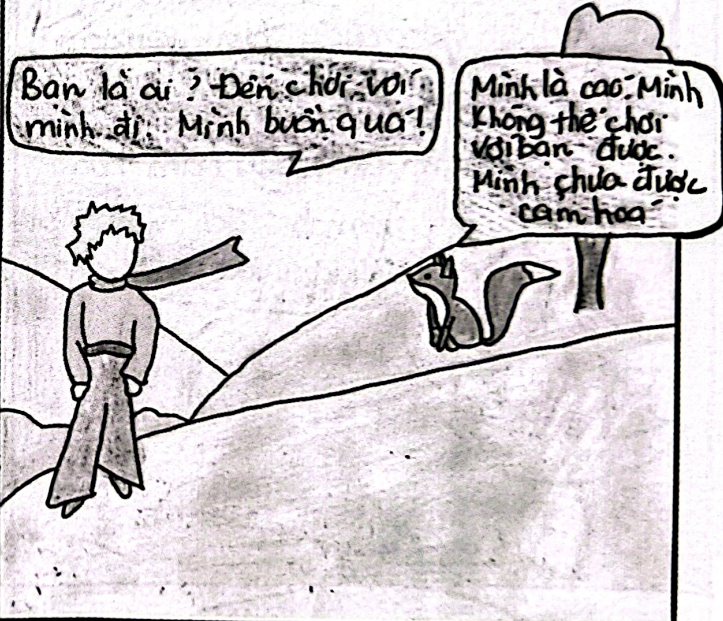 Bạn là ai? Đến chơi với
mình đi. Mình buồn quá!
Mình là cáo. Mình
không thể chơi
với bạn được.
Mình chưa được
cảm hoá